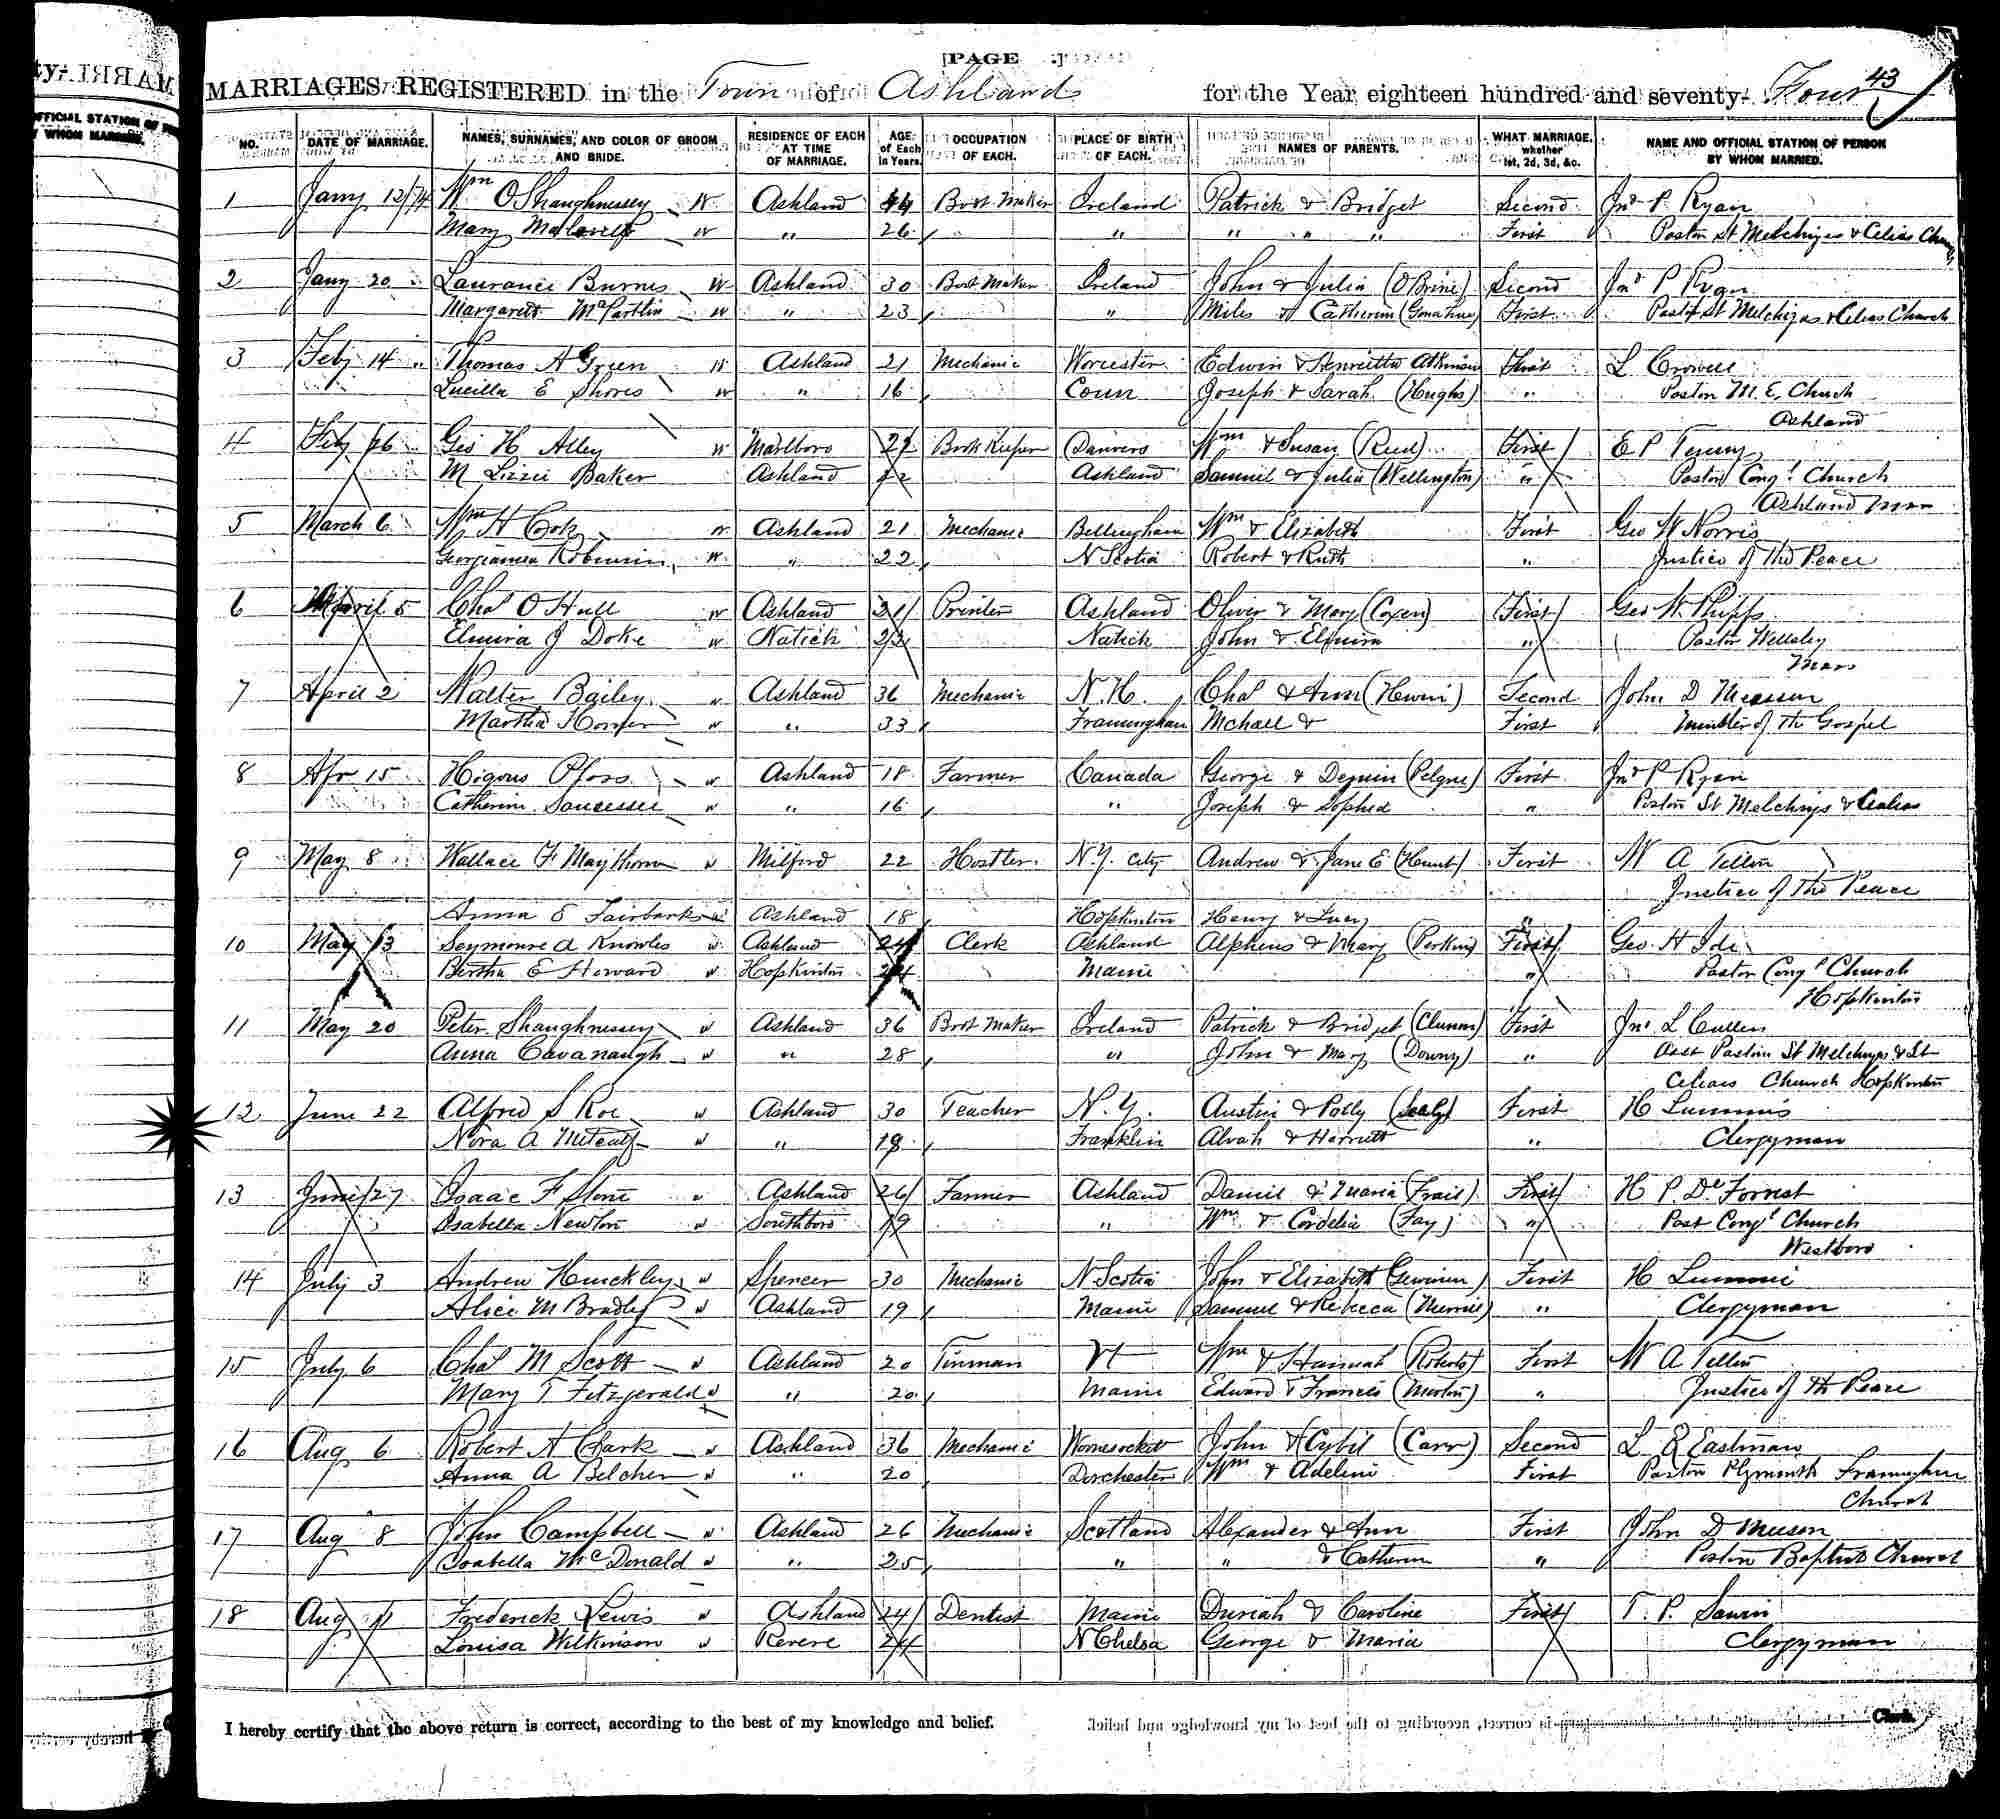 [PAGE .]
43
MARRIAGES REGISTERED in the Town of Ashland for the Year eighteen hundred and seventy- Four
NO. DATE OF MARRIAGE. NAMES, SURNAMES, AND COLOR OF GROOM AND BRIDE. RESIDENCE OF EACH AT TIME OF MARRIAGE. AGE of Each in Years. OCCUPATION OF EACH. PLACE OF BIRTH OF EACH. NAMES OF PARENTS. WHAT MARRIAGE, whether 1st, 2d, 3d, &c. NAME AND OFFICIAL STATION OF PERSON BY WHOM MARRIED.
1 Jany 12/74 Wm O Shaughnessey W Ashland 44 Boot Maker Ireland Patrick & Bridget Second Jno P Ryan
Mary W " 26 " " " " First Pastor St Melchizes & Celias Church
2 Jany 20 " Laurance Burnes W Ashland 30 Boot Maker Ireland John & Julia (OBrine) Second Jno P Ryan
Margarett McPartlin W " 23 " Miles & Catherin First Past St Melchizas & Celias Church
3 Feby 14 " Thomas A Green W Ashland 21 Mechanic Worcester Edwin & Henrietta Atkinson First L Crowell
Lucilla E Shores W " 16 Conn Joseph & Sarah (Hughs) " Pastor M. E. Church
Ashland
4 Feby 26 Geo H Alley W Marlboro 22 Book Keeper Danvers Wm & Susan (Reed) First E P Tenny
M Lizzie Baker Ashland 22 Ashland Samuel & Julia (Wellington) " Pastor Congl Church
Ashland Mass
5 March 6 Wm H Cook W Ashland 21 Mechanic Bellingham Wm & Elizabeth First Geo W Norris
Georgianna Robinson W " 22 N Scotia Robert & Ruth " Justice of the Peace
6 April 5 Chas O Hull W Ashland 21 Printer Ashland Oliver & Mary (Coxen) First Geo W. Phipps
Elmira J Doke W Natick 23 Natick John & Elmira " Pastor Wellsley
Mass
7 April 2 Walter Bailey W Ashland 36 Mechanic N. H. Chas & Ann Second John D
Martha Homer W " 33 Framingham Mchael & First minister of the Gospel
8 Apr 15 Pfoss W Ashland 18 Farmer Canada George & First Jno P Ryan
Catherine W " 16 " Joseph & Sophea " Pastor St Melchizs & Cealias
9 May 8 Wallace F Maythorn W Milford 22 Hostler N. Y. City Andrew & Jane E (Hunt) First W A Tilton
Justice of the Peace
Anna E Fairbanks W Ashland 18 Hopkinton Henry & Lucy "
10 May 13 Seymoure A Knowles W Ashland 24 Clerk Ashland Alpheus & Mary (Perkins) First Geo H Ide
Bertha E Howard W Hopkinton 24 Maine " Pastor Congl Church
Hopkinton
11 May 20 Peter Shaughnessey W Ashland 36 Boot Maker Ireland Patrick & Bridget First Jno L Cullen
Anna Cavanaugh W " 28 " John & Mary (Downy) " Asst Pastor St Melchizs & St
Celias Church Hopkinton
12 June 22 Alfred S Roe W Ashland 30 Teacher N. Y. Austin & Polly First H Lummis
Nora A Metcalf W " 19 Franklin Alvah & Harriett " Clergyman
13 June 27 Isaac F Stone W Ashland 26 Farmer Ashland Daniel & Maria (Frail) First H P. De Forrest
Isabella Newton W Southboro 19 " Wm & Cordelia (Fay) " Past Congl Church
Westboro
14 July 3 Andrew Hinckley W Spencer 30 Mechanic N Scotia John & Elizabeth First H Lummis
Alice M Bradley W Ashland 19 Maine Samuel & Rebecca (Merrill) " Clergyman
15 July 6 Chas M Scott W Ashland 20 Tinman Vt Wm & Hannah (Roberts) First W A Tilton
Mary T Fitzgerald W " 20 Maine Edward & Francis (Morton) " Justice of the Peace
16 Aug 6 Robert A Clark W Ashland 36 Mechanic Wornsockett John & Cybil (Carr) Second L R Eastman
Anna A Belcher W " 20 Dorchester Wm & Adeline First Pastor Plymouth Framingham
Church
17 Aug 8 John Campbell W Ashland 26 Mechanic Scotland Alexander & Ann First John D
Isabella McDonald W " 25 " " & Catherin " Pastor Baptist Church
18 Aug 11 Frederick Lewis W Ashland 24 Dentist Maine & Caroline First T. P. Sawin
Louisa Wilkinson W Revere 24 N Chelsa George & Maria Clergyman
I hereby certify that the above return is correct, according to the best of my knowledge and belief. Clerk.